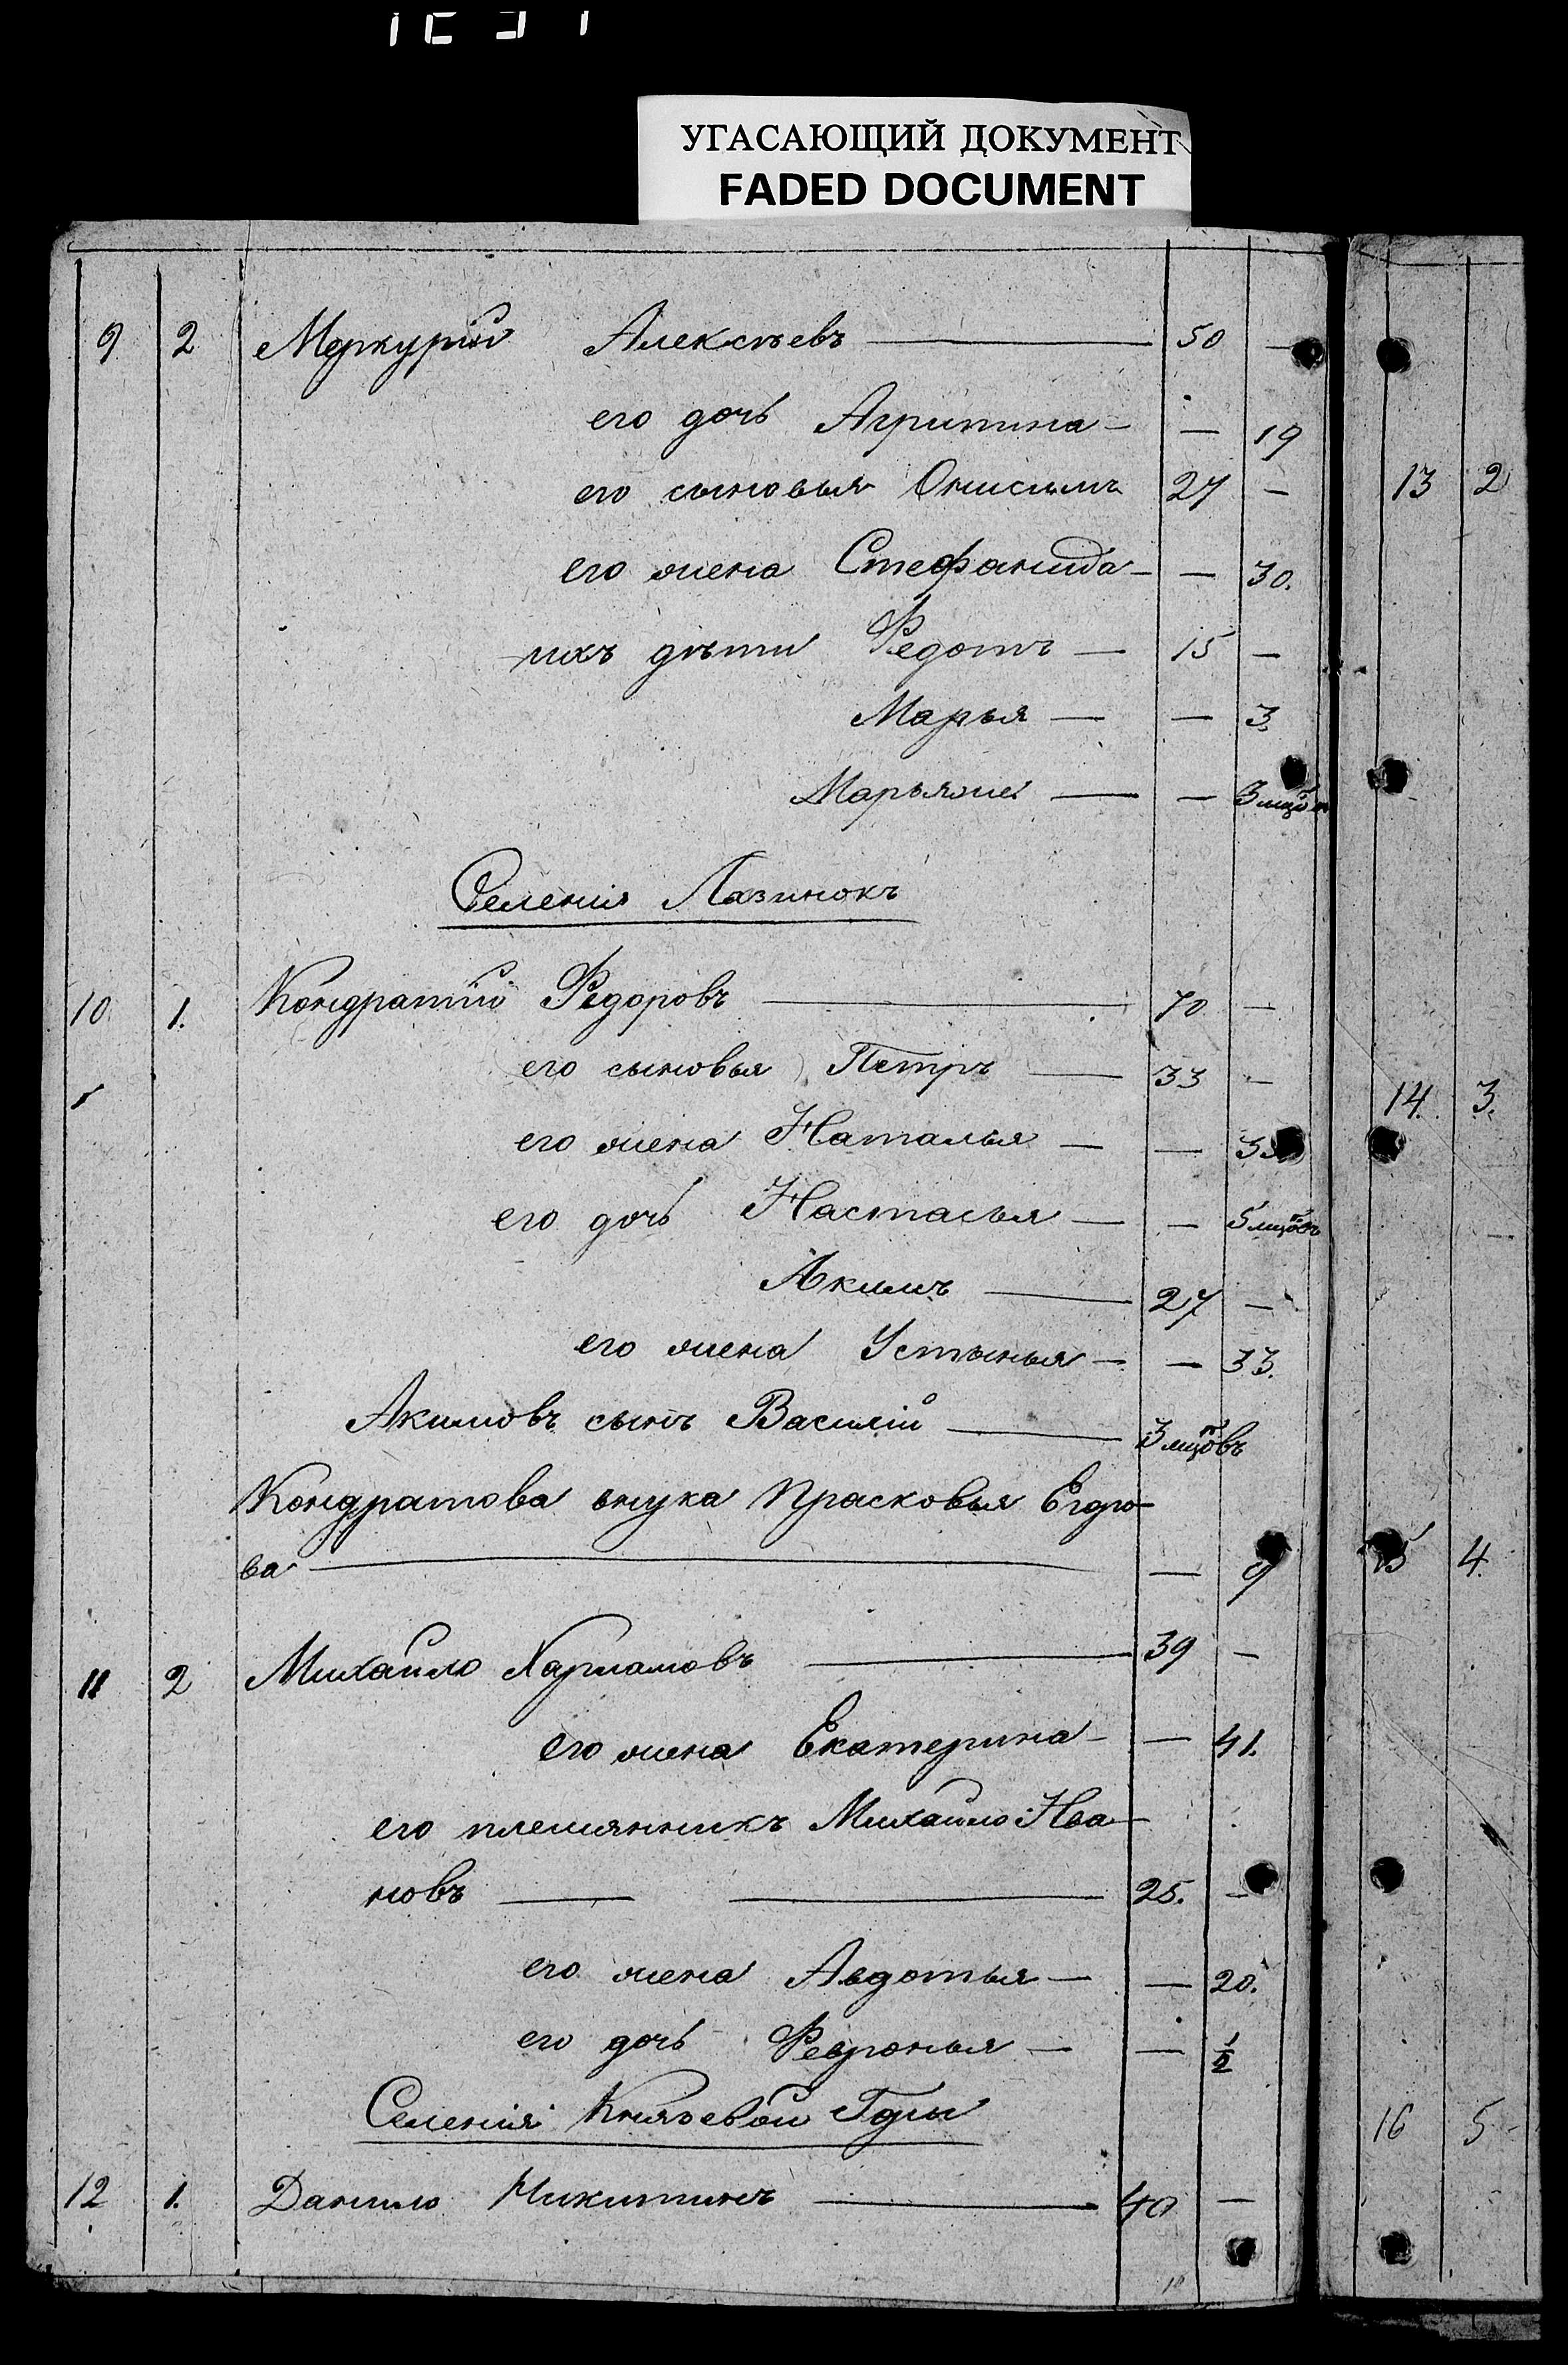 УГАСАЮЩИЙ ДОКУМЕНТ
FADED DOCUMENT
9 2 Меркурій Алексѣевъ — 50 —
его дочь Агрипина — — 19
его сыновья Онисимъ 27 —
его жена Стефанида — — 30.
ихъ дѣти Федотъ — 15 —
Марья — — 3
— — 3
Селенія Лазинокъ
10 1. Кондратій Федоровъ — 70 —
его сыновья Петръ — 33 —
его жена Наталья — —
его дочь Настасья — — 5
Акимъ — 27 —
его жена Устинья — — 33.
Акимовъ сынъ Василій — 3
Кондратова внука Прасковья Егоро-
ва — — 9
11 2 Михайло Харламовъ — 39 —
его жена Екатерина — — 41.
его племянникъ Михайло Ива-
новъ — — 25. —
его жена Авдотья — — 20.
его дочь Февронья — — 1/2
Селенія Князевой Горы
12 1. Данило Никитинъ — 40 —
13 2
14. 3.
15 4.
16 5